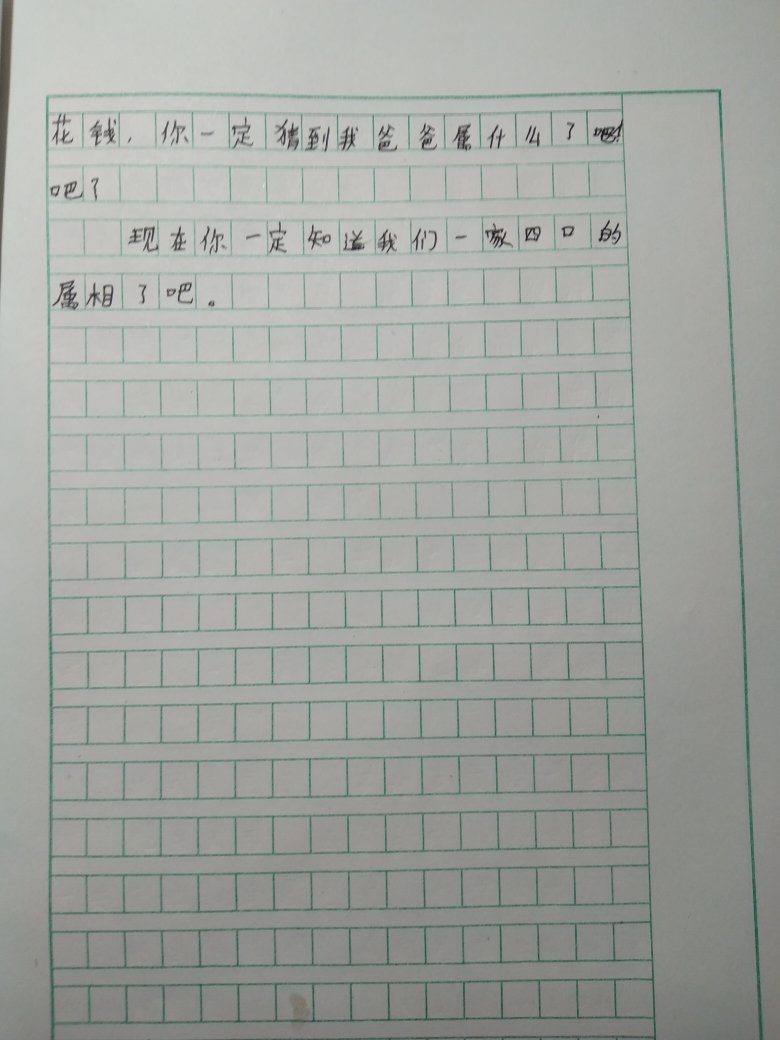 花钱,你一定猜到我爸爸属什么了
吧?
现在你一定知道我们一家四口的
属相了吧。